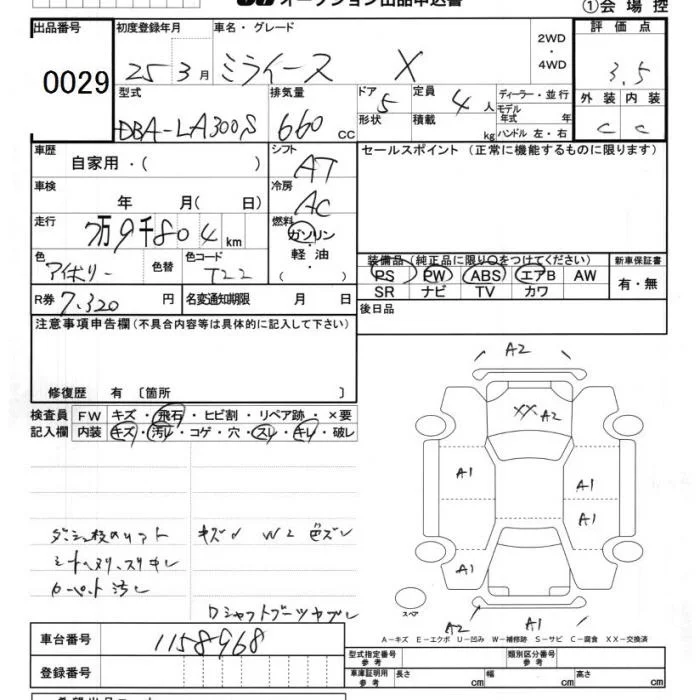 オークション出品申込書
①会場控
出品番号
0029
初度登録年月
25 3月
車名・グレード
ミライース X
2WD
・
4WD
評価点
3.5
外装 内装
C C
型式
DBA-LA300S
排気量
660 cc
ドア 5
形状
定員 4 人
積載 kg
ディーラー・並行
モデル年式 年
ハンドル 左・右
車歴
自家用・( )
シフト
AT
車検
年 月( 日)
冷房
AC
走行
7万9千804 km
燃料
ガソリン
軽油
( )
色
アイボリー
色替
色コード
T22
R券 7.320 円
名変通知期限 月 日
セールスポイント (正常に機能するものに限ります)
装備品(純正品に限り○をつけてください)
PS PW ABS エアB AW
SR ナビ TV カワ
新車保証書
有・無
後日品
注意事項申告欄(不具合内容等は具体的に記入して下さい)
修復歴 有 〔箇所 〕
検査員記入欄
FW キズ・飛石・ヒビ割・リペア跡・×要
内装 キズ・汚レ・コゲ・穴・スレ・キレ・破レ
キズ W2 色ズレ
カーペット汚レ
Dシャフトブーツヤブレ
A2
XX A2
A1
A1
A1
A1
A2
A1
スペア
A-キズ E-エクボ U-凹み W-補修跡 S-サビ C-腐食 XX-交換済
車台番号
1158968
登録番号
型式指定番号
参考
類別区分番号
参考
車庫証明用
参考
長さ cm
幅 cm
高さ cm